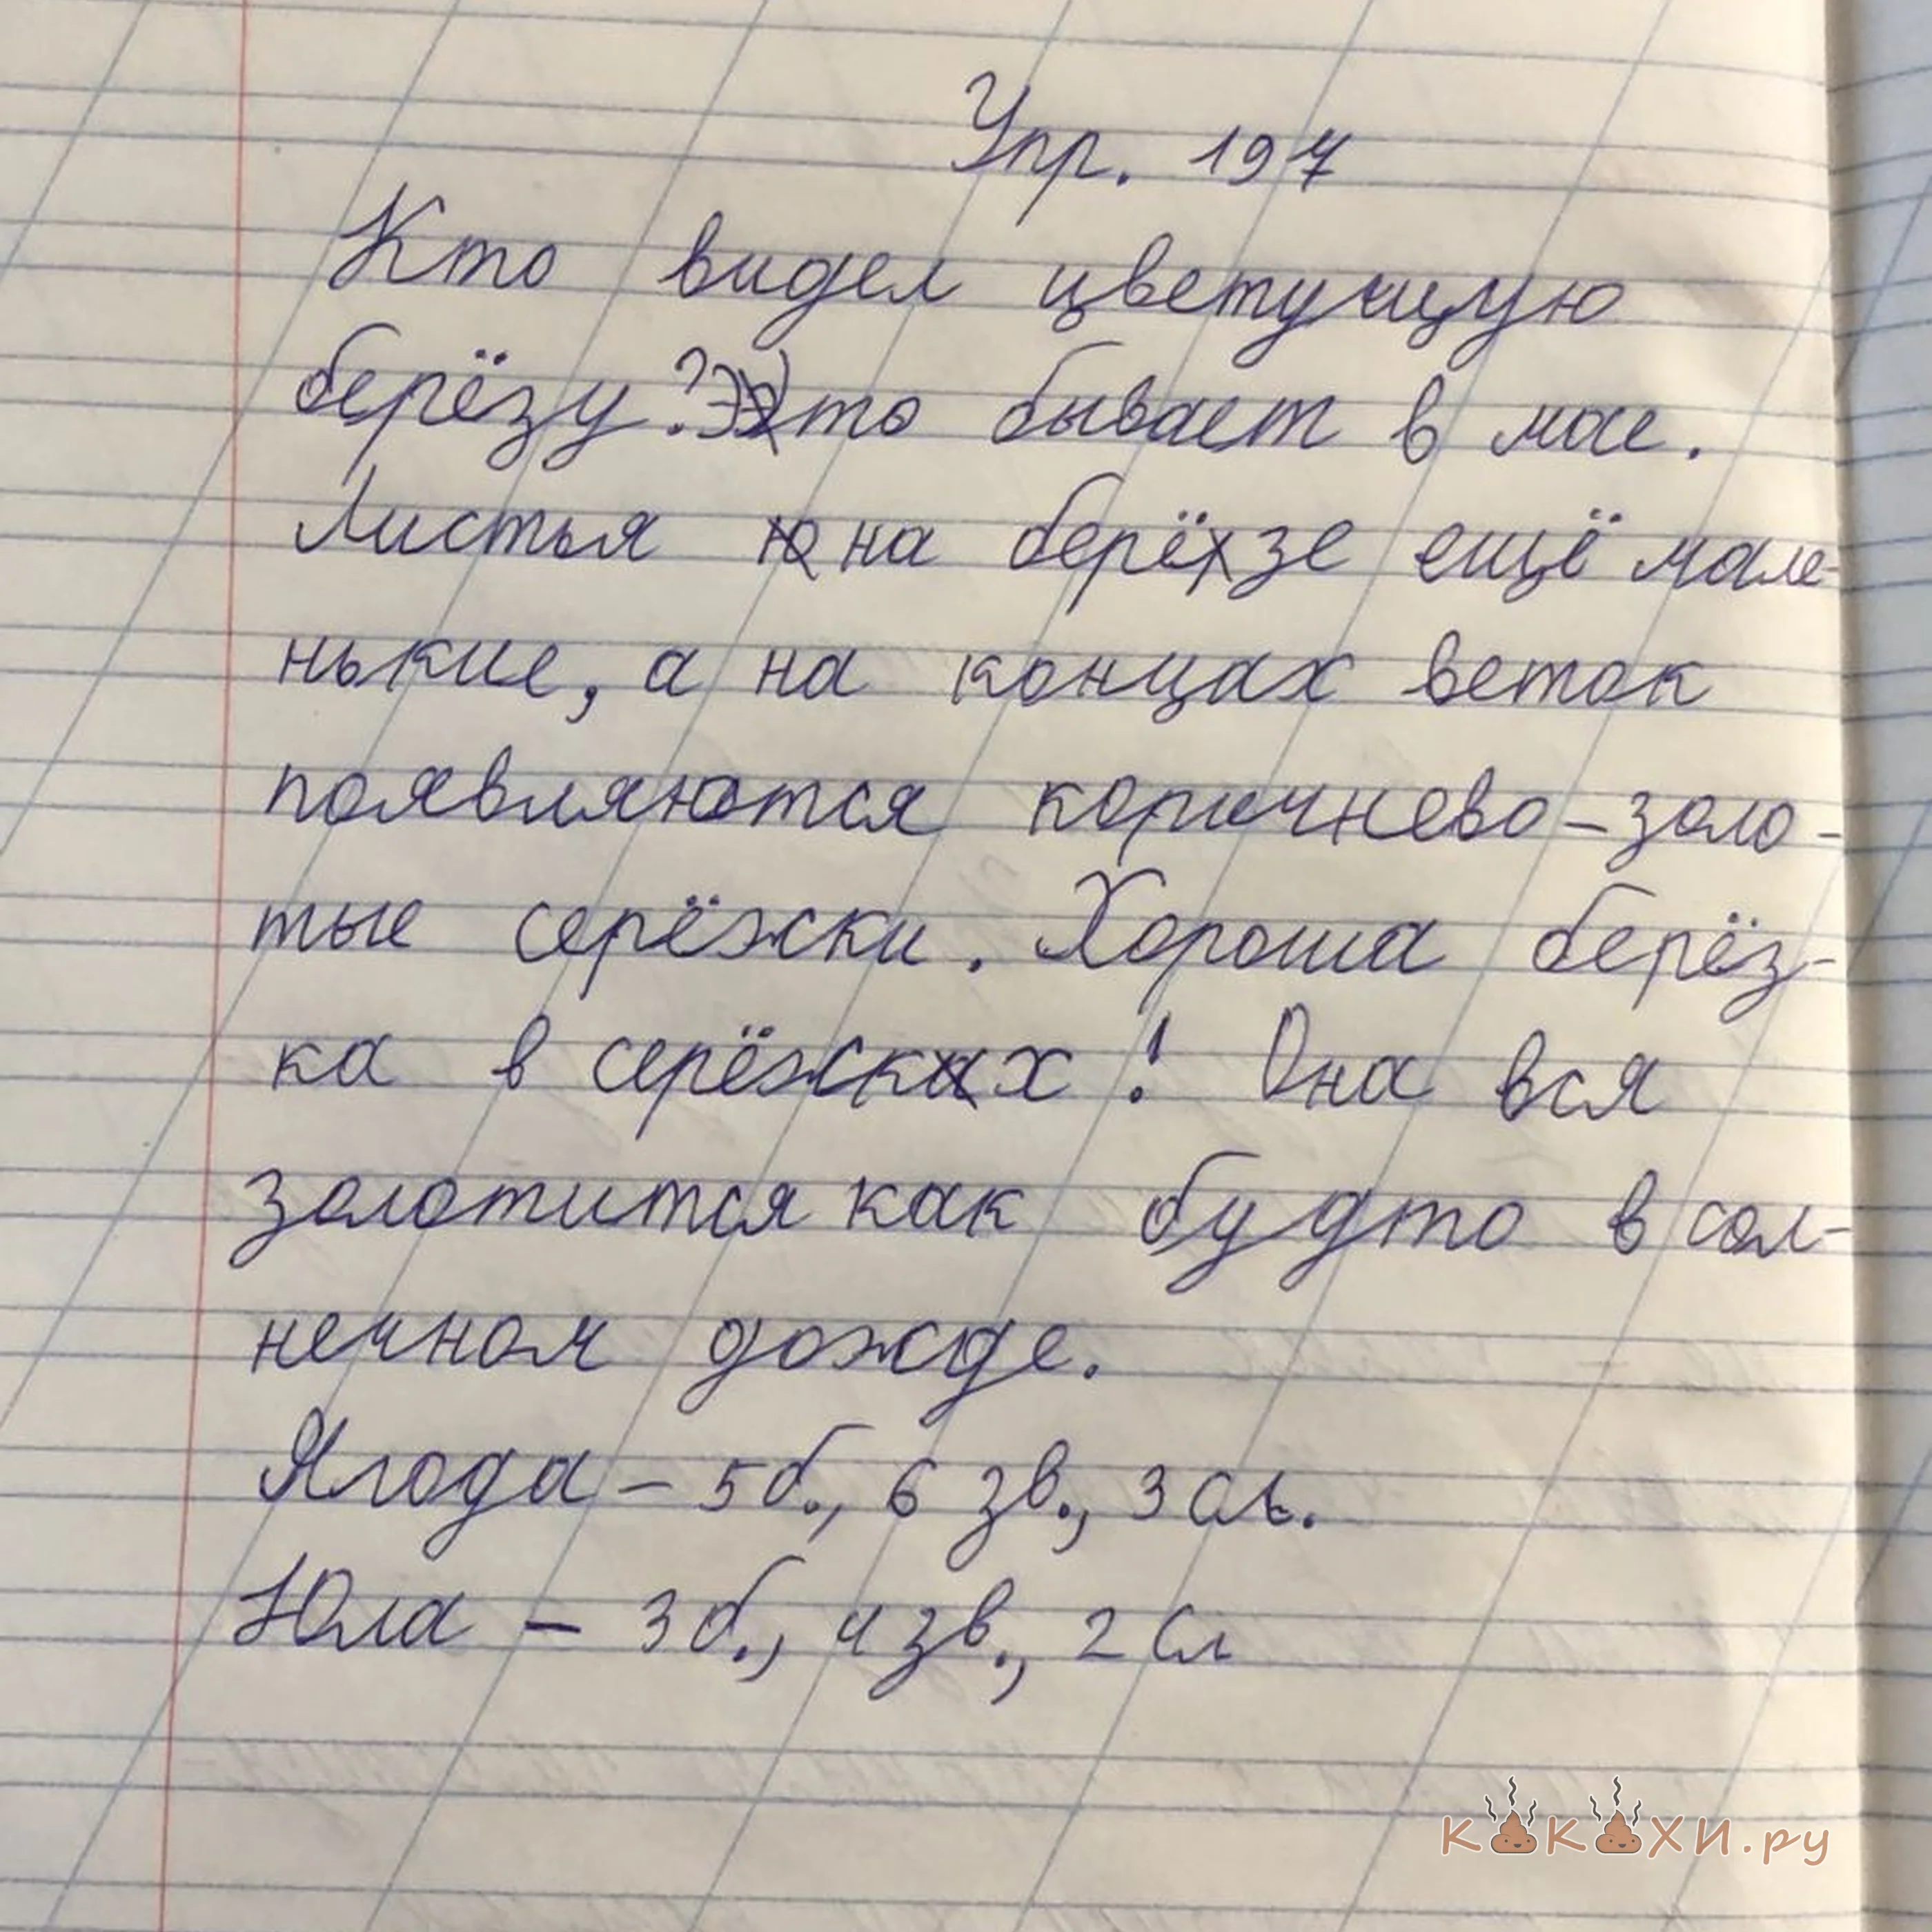 Упр. 197
Кто видел цветущую
берёзу? Это бывает в мае.
Листья на берёзе ещё мале-
нькие, а на концах веток
появляются коричнево-золо-
тые серёжки. Хороша берёз-
ка в серёжках! Она вся
золотится как будто в сол-
нечном дожде.
Ягода – 5 б., 6 зв., 3 сл.
Юла – 3 б., 4 зв., 2 сл
какахи.ру